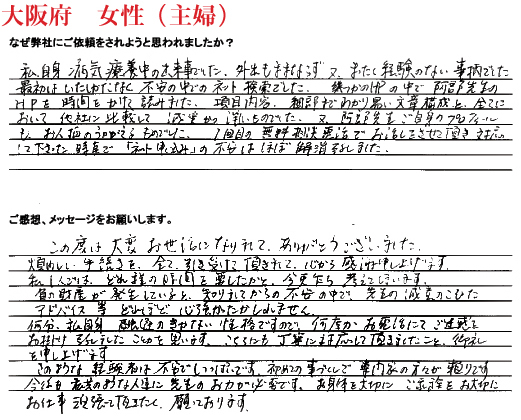 大阪府　女性（主婦）
なぜ弊社にご依頼をされようと思われましたか？
私自身 病気療養中の出来事でした。外出もままならず 又、まったく経験のない事柄でした
最初はいたしかたなく 不安の中でのネット検索でした。 幾つかのHPの中で 阿部先生の
HPを時間をかけて読みました。 項目内容、細部までわかり易い文章構成と、全てに
おいて 他社に比較して 誠実かつ 深いものでした。又、阿部先生ご自身のプロフィール
も お人柄のうかがえるもので 1回目の無料相談電話でお話しさせて頂き 対応
して下さった時点で「ネット申込み」の不安はほぼ解消致しました。
ご感想、メッセージをお願いします。
この度は 大変 お世話になりまして、ありがとうございました。
煩わしい手続きを、全て、引き受けて頂きまして、心から感謝申し上げます。
私1人では、どれ程の時間を要したかと、今更乍ら 考えてしまいます。
負の財産が発生していると、知りましてからの不安の中で、先生の誠実のこもった
アドバイス等 どれほど 心強かったかしれません。
何分、私自身 融通のきかない性格ですので、何度かお電話にてご迷惑を
お掛けもうしましたことと思います。 こちらにも丁寧に対応して頂きましたこと、御礼
を申し上げます
このような経験者は不安でいっぱいです。初めての事づくしで 専門家の方々が頼りです
今後も 先生のお力が必要です。お身体を大切に ご家族をお大切に
お仕事 頑張って頂きたく、願っております。